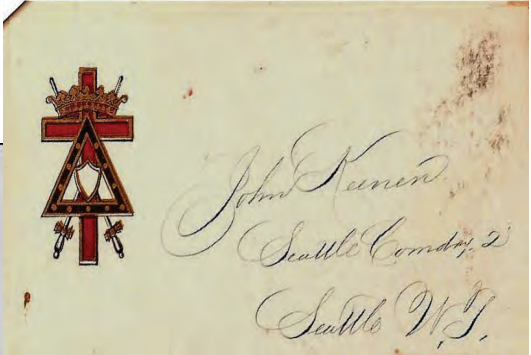 John Keenen
Seattle Comdry, 2
Seattle W.T.